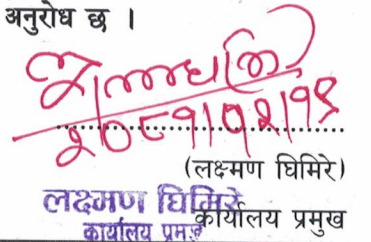 अनुरोध छ ।
२०८१।१२।१९
(लक्ष्मण घिमिरे)
कार्यालय प्रमुख
लक्ष्मण घिमिरे
कार्यालय प्रमुख